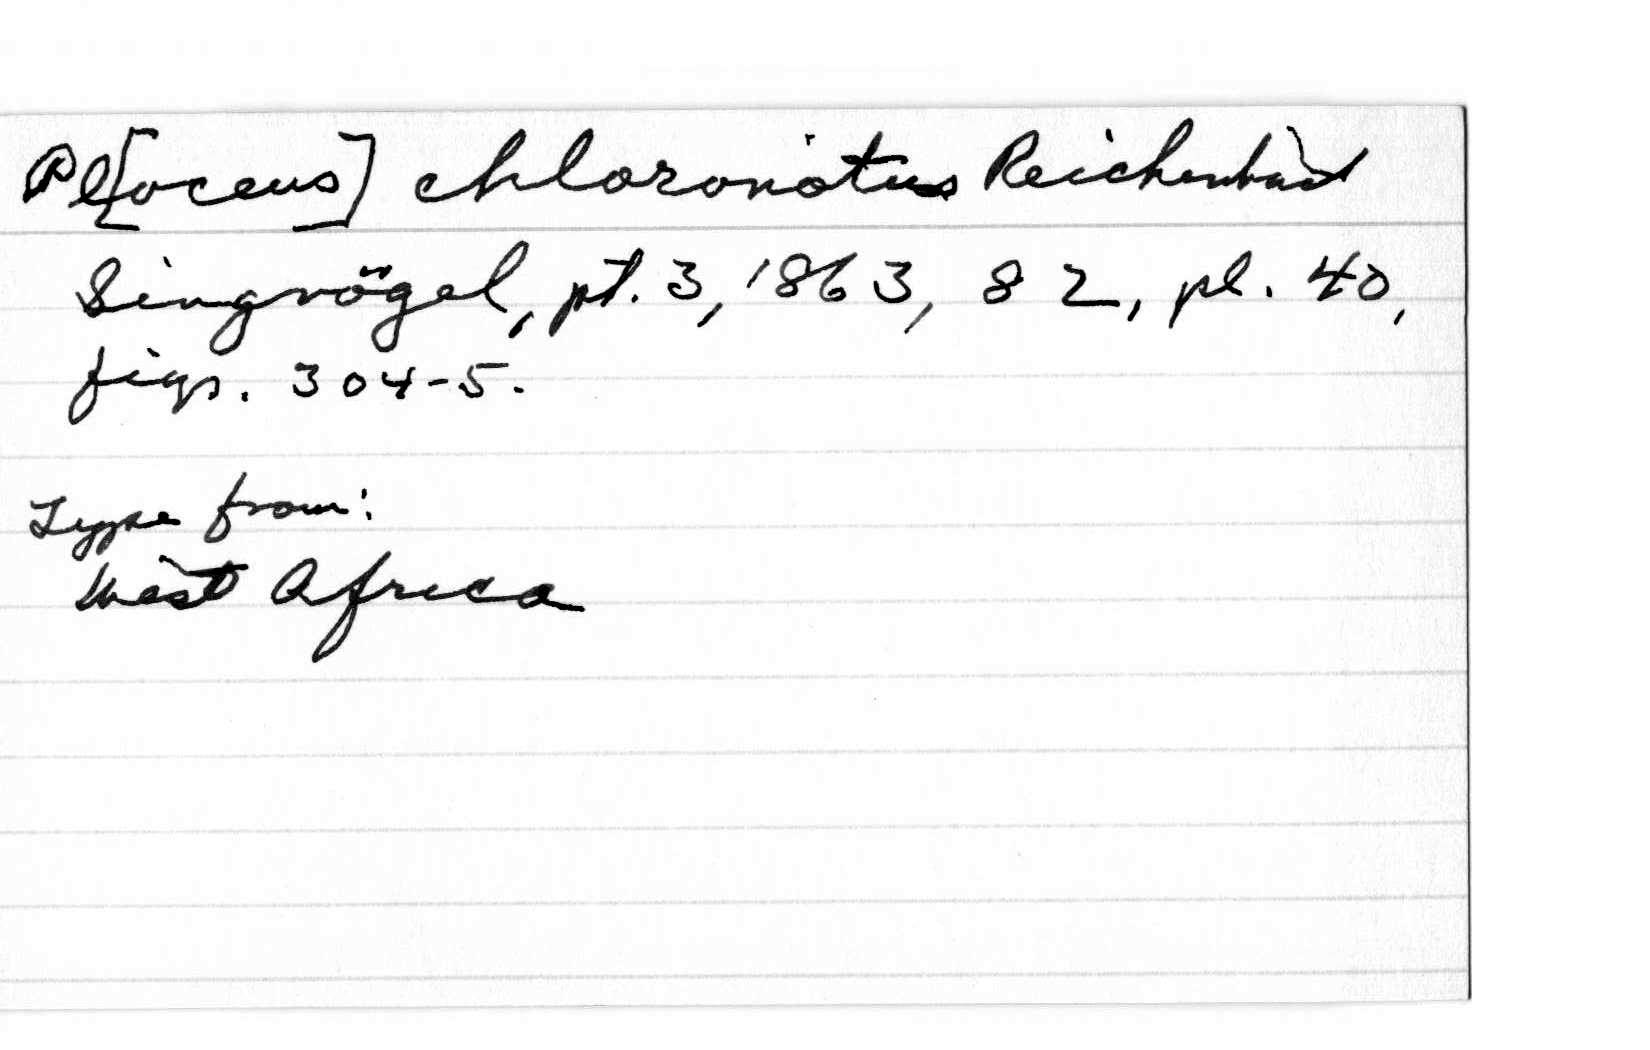 Pl[oceus] chloronotus Reichenbach
Singvögel, pt. 3, 1863, 82, pl. 40,
figs. 304-5.
Type from:
West Africa